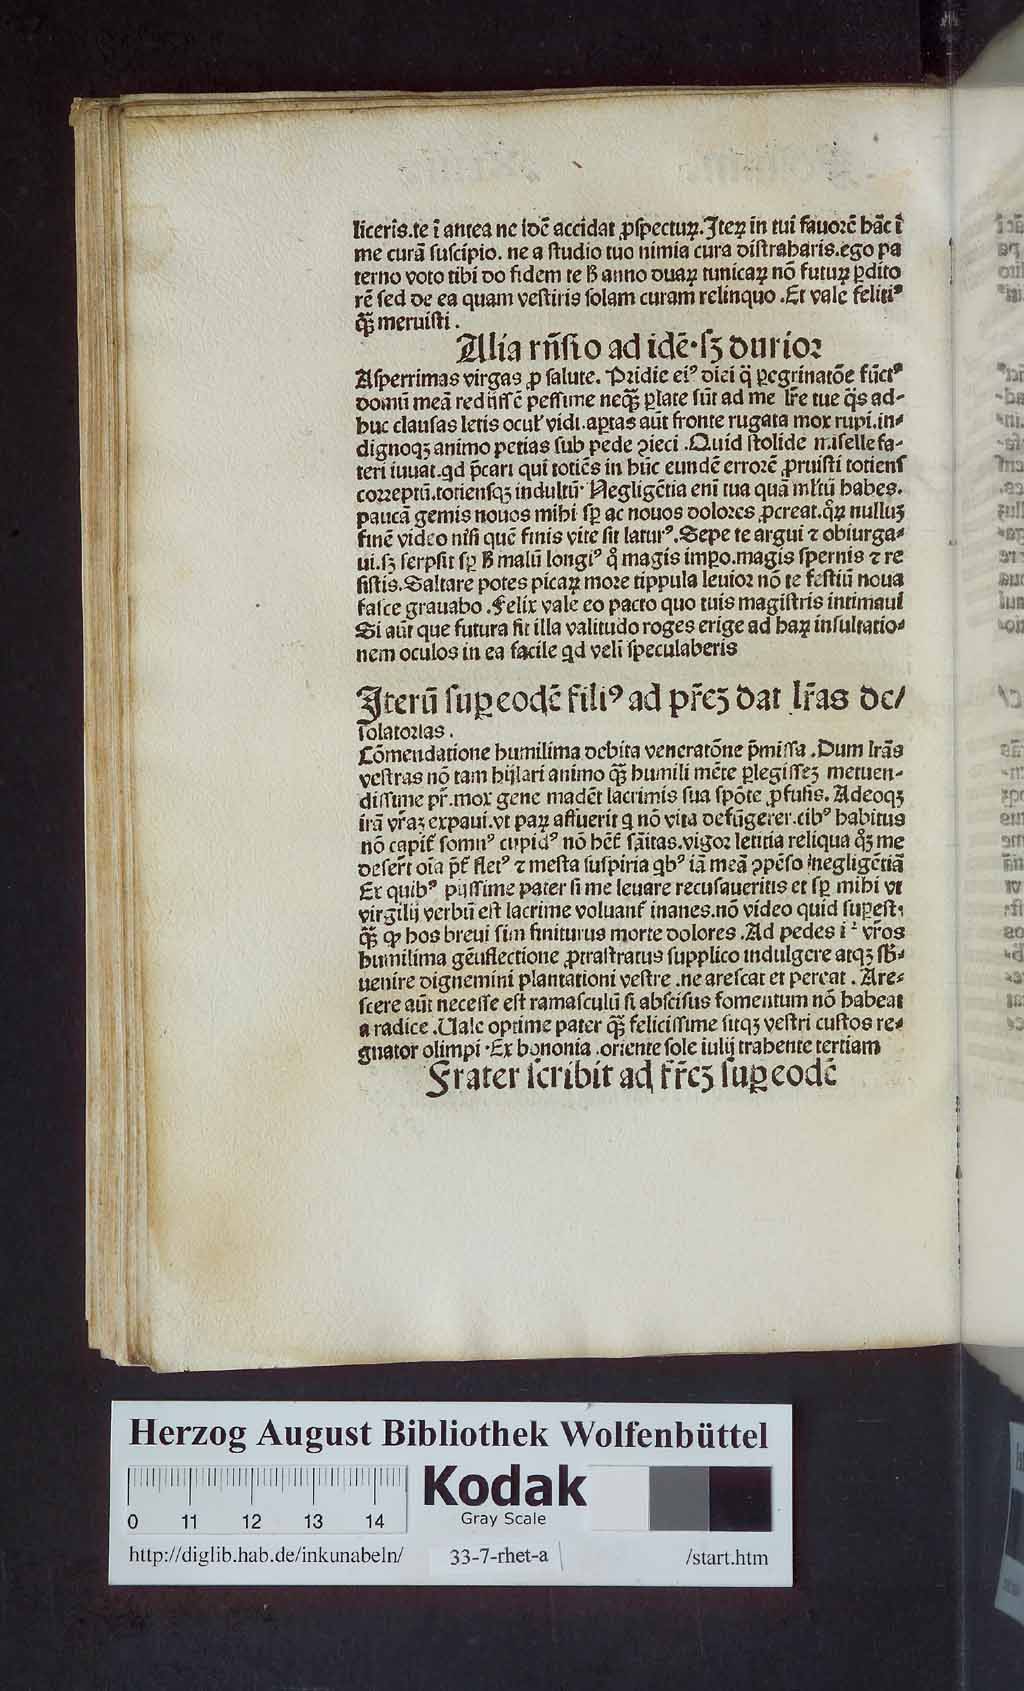 liceris.te ī antea ne idē accidat ꝓspectuꝝ.Iteꝝ in tui fauorē hāc ī
me curā suscipio. ne a studio tuo nimia cura distraharis.ego pa
terno voto tibi do fidem te ß anno duaꝝ tunicaꝝ nō futuꝝ ꝑdito
rē sed de ea quam vestiris solam curam relinquo .Et vale felitiꝰ
qꝫ̄ meruisti .
Alia rn̄sio ad idē·sꝫ durior
Asperrimas virgas ꝓ salute. Pridie eiꝰ diei q̄ ꝑegrinatōe fūctꝰ
domū meā redijssē pessime neqꝫ̄ ꝑlate sūt ad me lr̄e tue q̄s ad-
huc clausas letis oculꝭ vidi.aꝑtas aūt fronte rugata mox rupi.in-
dignoqꝫ animo petias sub pede ꝯieci .Quid stolide miselle fa-
teri iuuat.qd p̄cari qui totiēs in hūc eundē errorē ꝓruisti totiens
correptū.totiensqꝫ indultū· Negligētia eni tua quā mltū habes.
paucā gemis nouos mihi sꝑ ac nouos dolores ꝓcreat.qꝝ̄ nulluꝫ
finē video nisi quē finis vite sit laturꝰ.Sepe te argui ⁊ obiurga-
ui.sꝫ serpsit sꝑ ß malū longiꝰ q̊ magis impo.magis spernis ⁊ re
sistis.Saltare potes picaꝝ more tippula leuior nō te festiū noua
fasce grauabo .Felix vale eo pacto quo tuis magistris intimaui
Si aūt que futura sit illa valitudo roges erige ad haꝝ insultatio-
nem oculos in ea facile qd veli speculaberis
Iterū suꝑeodē filiꝰ ad pr̄eꝫ dat lr̄as de/
solatorias .
Cōmendatione humilima debita veneratōne p̄missa .Dum lrās
vestras nō tam hijlari animo qꝫ̄ humili mēte ꝑlegisseꝫ metuen-
dissime pr̄.mox gene madēt lacrimis sua spōte ꝓfusis. Adeoqꝫ
irā vr̄aꝫ expaui.vt paꝝ affuerit q nō vita defūgerer.cibꝰ habitus
nō capiť somnꝰ cupidꝰ nō hēť sāitas.vigor letitia reliqua qꝫ̊ me
desert̄ oīa p̄ť fletꝰ ⁊ mesta suspiria qbꝰ iā meā ꝯpēso negligētiā
Ex quibꝰ pijssime pater si me leuare recusaueritis et sꝑ mihi vt
virgilij verbū est lacrime voluanť inanes.nō video quid suꝑest·
qꝫ̄ ꝙ hos breui sim finiturus morte dolores .Ad pedes iᷓ vr̄os
humilima gēuflectione ꝓtrastratus supplico indulgere atqꝫ sß-
uenire dignemini plantationi vestre .ne arescat et pereat . Are-
scere aūt necesse est ramasculū si abscisus fomentum nō habeat
a radice .Uale optime pater qꝫ̄ felicissime sitqꝫ vestri custos re-
gnator olimpi ·Ex bononia .oriente sole iulij trahente tertiam
Frater scribit ad fr̄eꝫ suꝑeodē
Herzog August Bibliothek Wolfenbüttel
Kodak
Gray Scale
0 11 12 13 14
http://diglib.hab.de/inkunabeln/ 33-7-rhet-a /start.htm